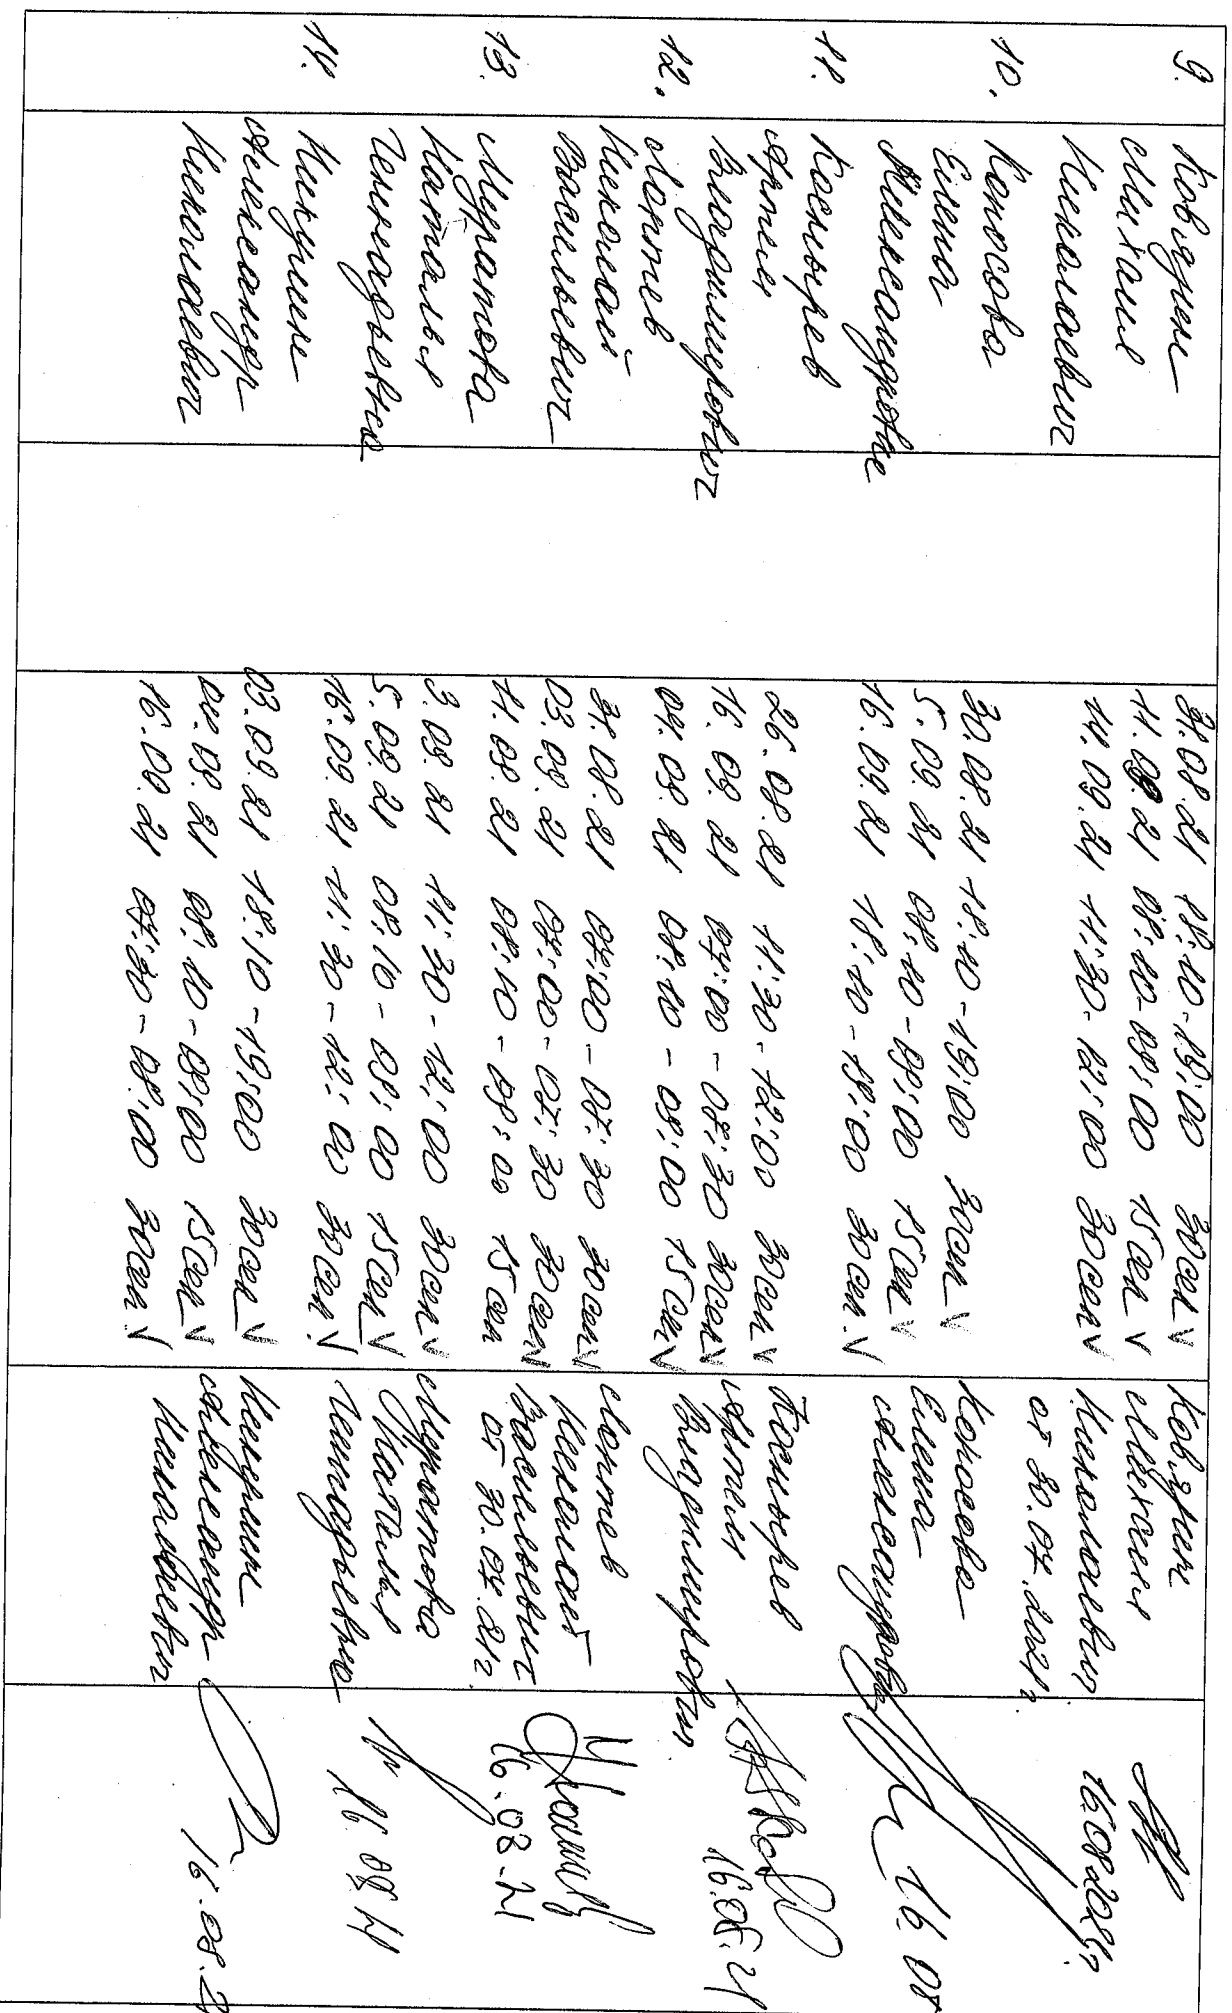 9.
Ковязин
Михаил
Николаевич
31.08.21 18:10-19:00 30сек V
11.09.21 08:10-09:00 15сек V
14.09.21 11:30-12:00 30сек V
Ковязин
Михаил
Николаевич
от 30.07.2021г.
16.08.2021г.
10.
Коносова
Елена
Александровна
30.08.21 18:10-19:00 30сек V
5.09.21 08:10-09:00 15сек V
16.09.21 18:10-19:00 30сек V
Коносова
Елена
Александровна
16.08
11.
Косырев
Артем
Владимирович
26.08.21 11:30-12:00 30сек V
16.09.21 07:00-07:30 30сек V
04.09.21 08:10-09:00 15сек V
Косырев
Артем
Владимирович
16.08.21
12.
Лаптев
Николай
Васильевич
31.08.21 07:00-07:30 30сек V
03.09.21 07:00-07:30 30сек V
11.09.21 08:10-09:00 15сек
Лаптев
Николай
Васильевич
от 30.07.21г.
16.08.21
13.
Муратова
Наталья
Геннадьевна
3.09.21 11:30-12:00 30сек V
5.09.21 08:10-09:00 15сек V
16.09.21 11:30-12:00 30сек V
Муратова
Наталья
Геннадьевна
16.08.21
14.
Никулин
Александр
Николаевич
03.09.21 18:10-19:00 30сек V
04.09.21 08:10-09:00 15сек V
16.09.21 07:30-08:00 30сек V
Никулин
Александр
Николаевич
16.08.2